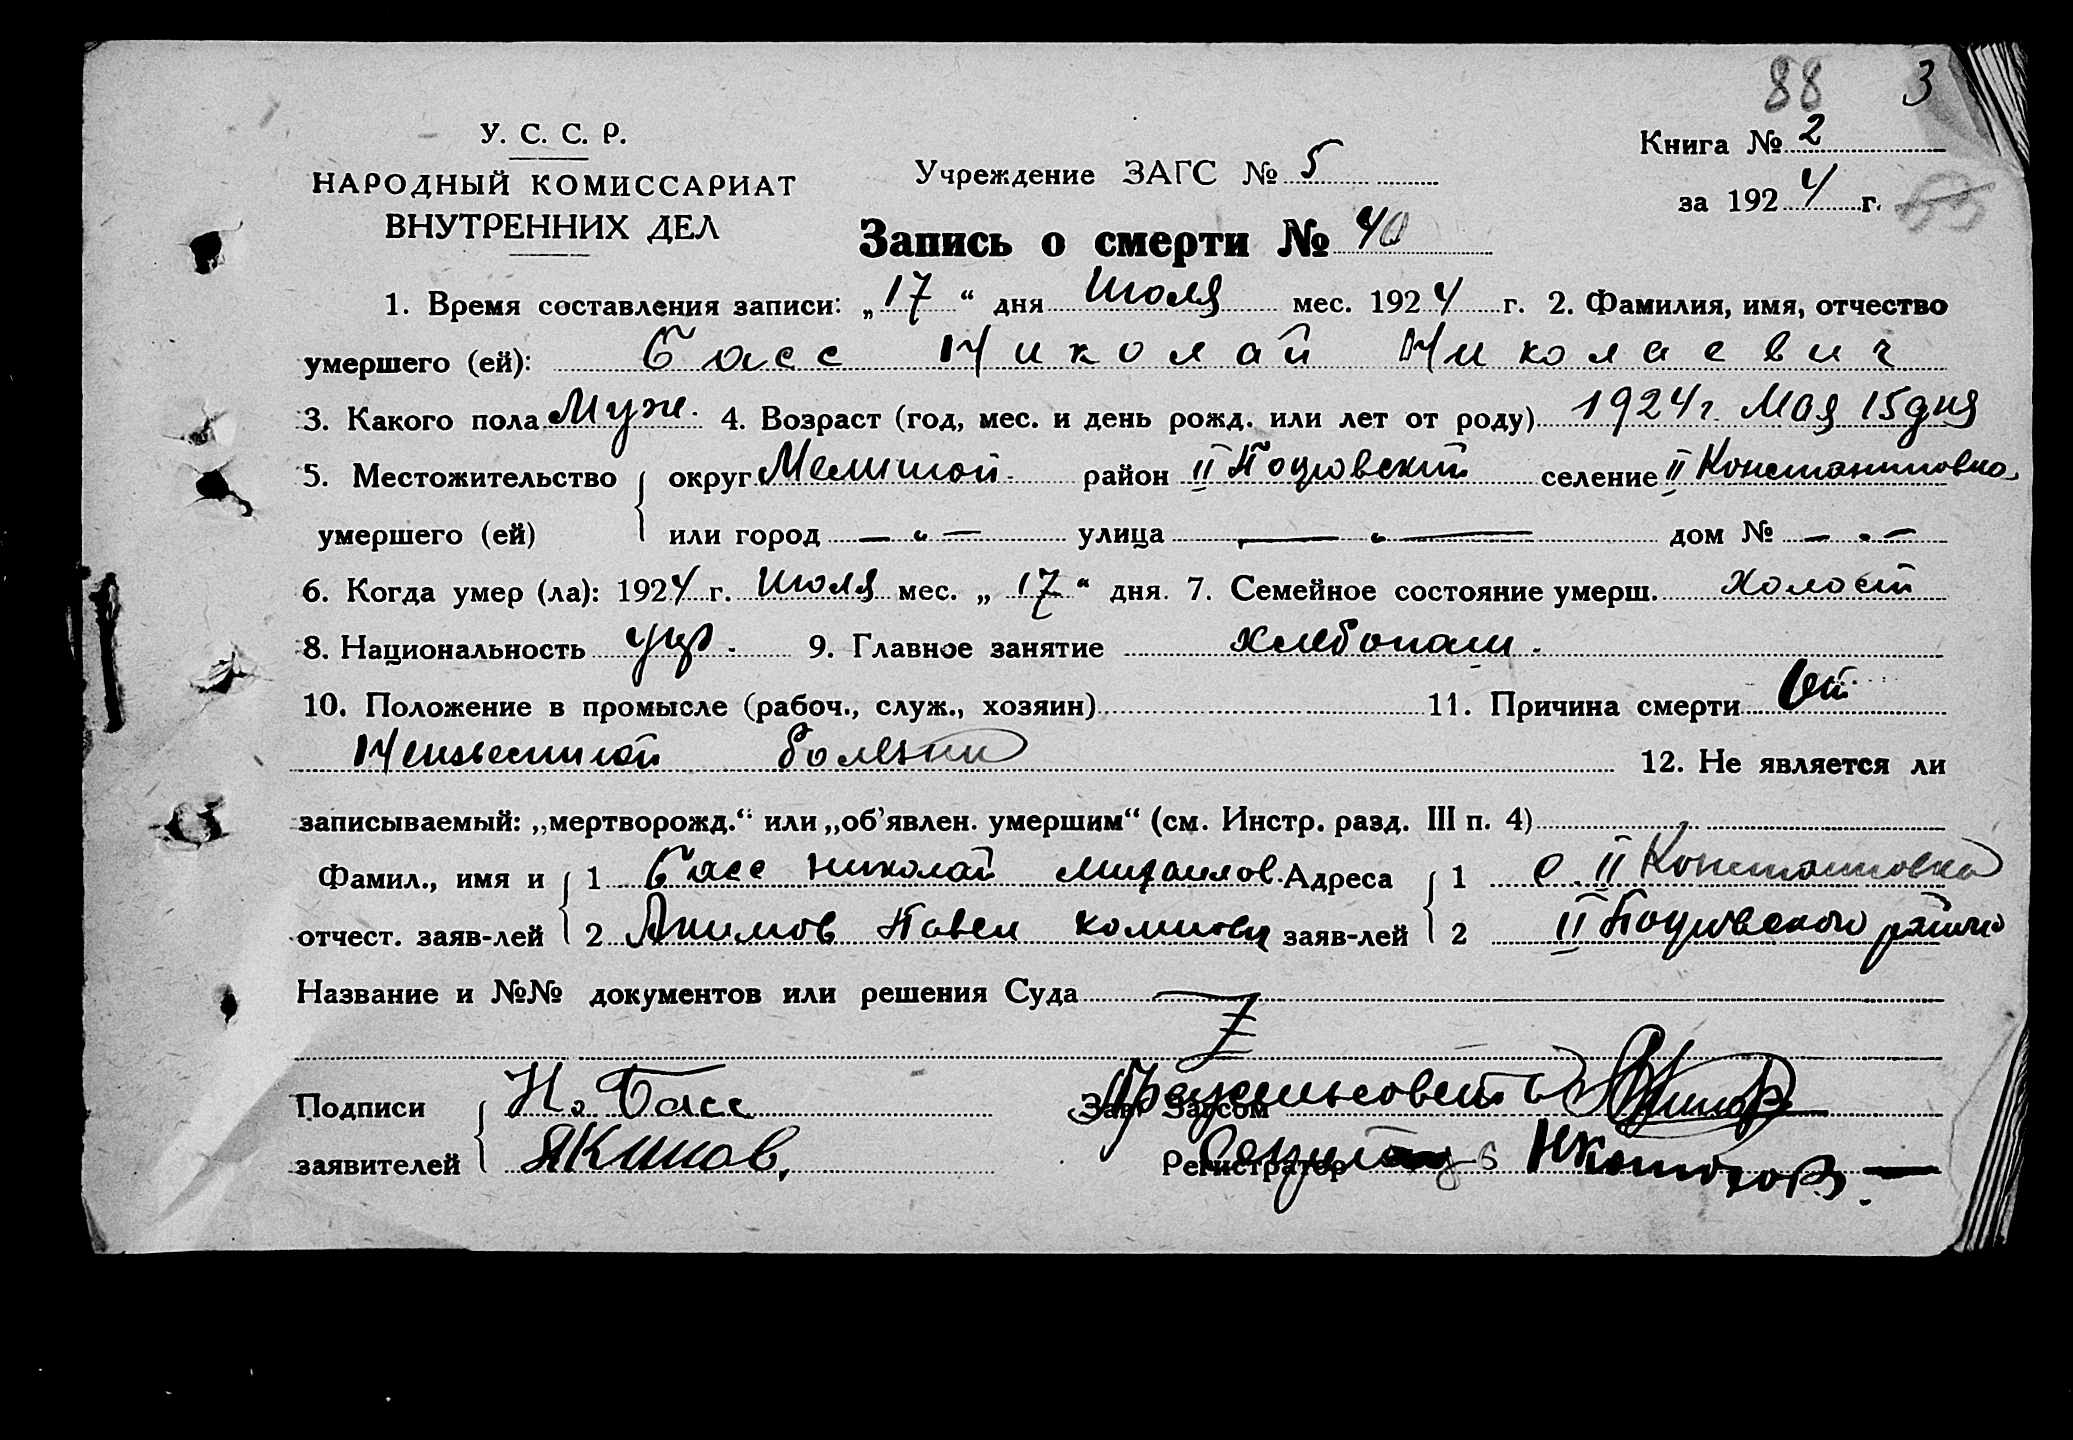 88 3
У. С. С. Р.
НАРОДНЫЙ КОМИССАРИАТ
ВНУТРЕННИХ ДЕЛ
Учреждение ЗАГС № 5
Книга № 2
за 1924 г.
Запись о смерти № 40
1. Время составления записи: „17“ дня Июля мес. 1924 г. 2. Фамилия, имя, отчество
умершего (ей): Басс Николай Николаевич
3. Какого пола Муж. 4. Возраст (год, мес. и день рожд. или лет от роду) 1924 г. Мая 15 дня
5. Местожительство умершего (ей) округ район II селение II Константиновка
или город — „ — улица — „ — дом № — „ —
6. Когда умер (ла): 1924 г. Июля мес. „17“ дня. 7. Семейное состояние умерш. холост
8. Национальность укр. 9. Главное занятие хлебопаш.
10. Положение в промысле (рабоч., служ., хозяин) 11. Причина смерти От
Неизвестной болезни 12. Не является ли
записываемый: „мертворожд.“ или „об’явлен. умершим“ (см. Инстр. разд. III п. 4)
Фамил., имя и отчест. заяв-лей 1 Басс Николай Михайлов. Адреса заяв-лей 1 с. II Константиновка
2 Якимов Павел 2 II района
Название и №№ документов или решения Суда
Подписи заявителей Н. Басс
Якимов.
Зав. Загсом
Регистратор